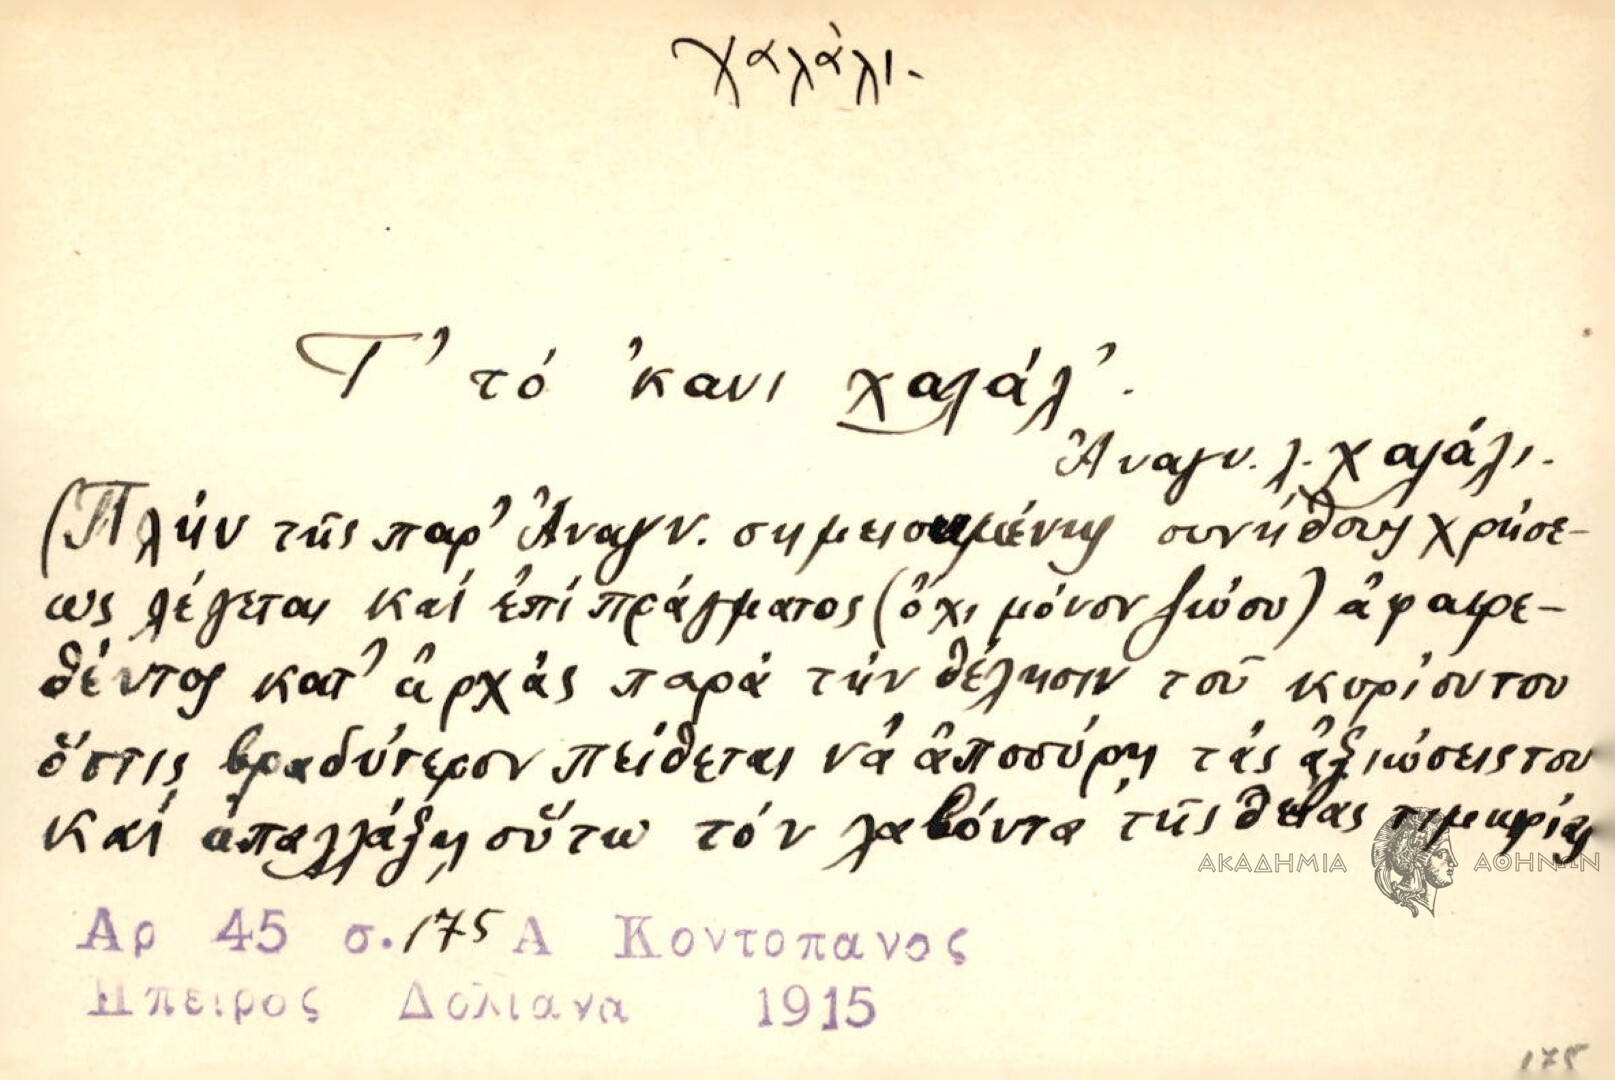 χαλάλι.
Τ' τό 'κανι χαλάλ'.
Ἀναγν. λ. χαλάλι.
(Πλήν τῆς παρ' Ἀναγν. σημειουμένης συνήθους χρήσε-
ως λέγεται καί ἐπί πράγματος (ὄχι μόνον ζώου) ἀφαιρε-
θέντος κατ' ἀρχάς παρά τήν θέλησιν τοῦ κυρίου του
ὅστις βραδύτερον πείθεται νά ἀποσύρῃ τάς ἀξιώσεις του
καί ἀπαλλάξῃ οὕτω τόν λαβόντα τῆς θείας τιμωρίας
ΑΚΑΔΗΜΙΑ ΑΘΗΝΩΝ
Αρ 45 σ. 175 Α Κοντοπανος
Ηπειρος Δολιανα 1915
175